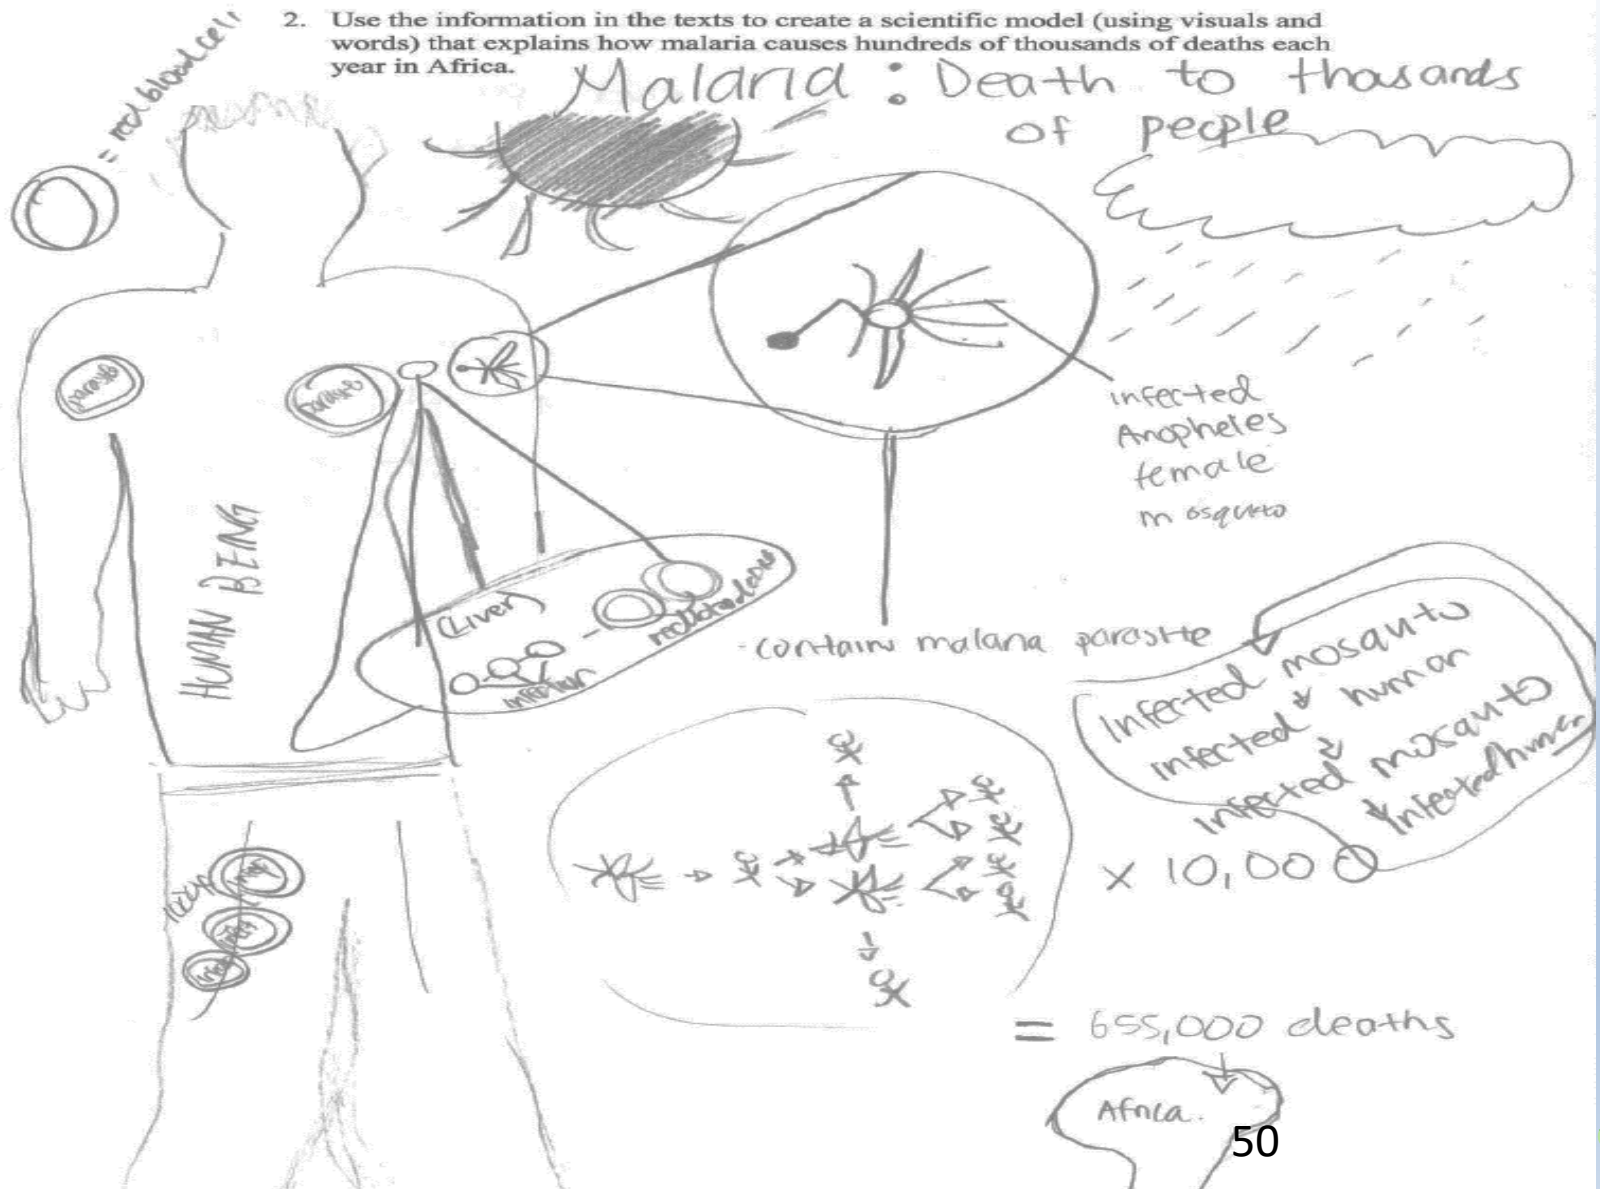 2. Use the information in the texts to create a scientific model (using visuals and
words) that explains how malaria causes hundreds of thousands of deaths each
year in Africa.
Malaria : Death to thousands
of people
= red blood cell
parasite
parasite
HUMAN BEING
(Liver)
infection
infected
Anopheles
female
mosquito
- contains malaria parasite
Infected mosquito
infected human
infected mosquito
infected human
x 10,000
= 655,000 deaths
Africa.
50